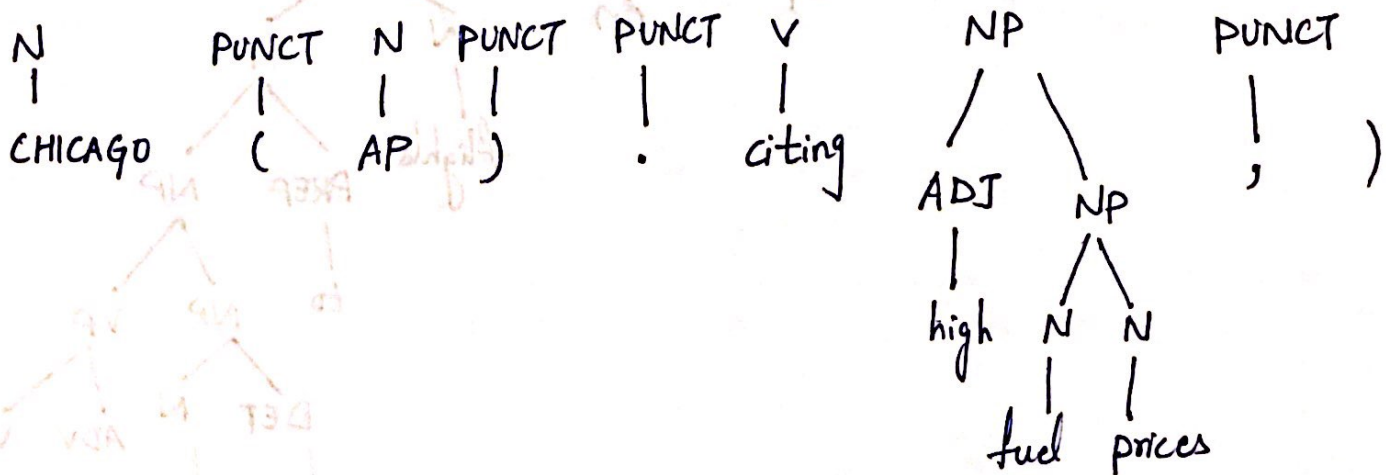 N PUNCT N PUNCT PUNCT V NP PUNCT
CHICAGO ( AP ) . citing , )
ADJ NP
high N N
fuel prices